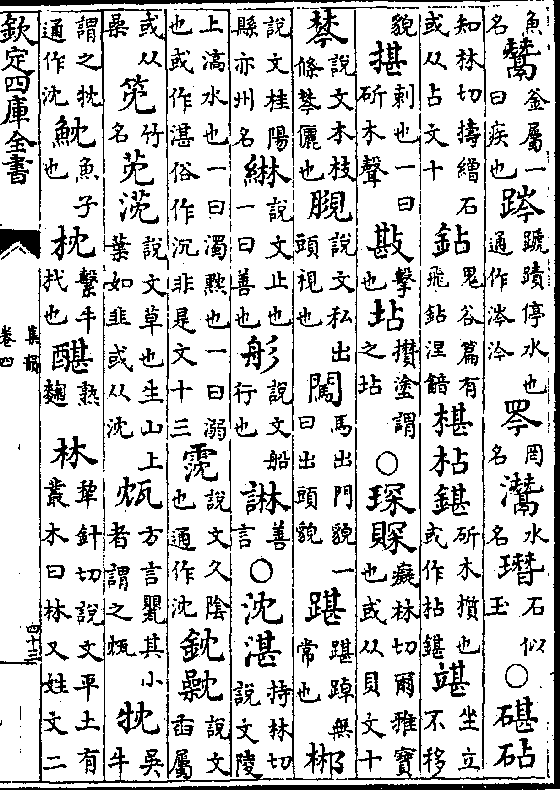 魚名 鬵 釜屬一曰疾也 蹏蹟停水也通作涔汵 罔名 灊 水名 石似玉 ○ 碪砧
知林切擣繒石或从占文十 鉆 鬼谷篇有飛鉆涅䤃 椹枮鍖 斫木櫍也或作枮鍖 坐立不移
貌 揕 刺也一曰斫木聲 㪛 擊也 坫 攢塗謂之坫 ○ 琛賝 癡林切爾雅寶也或从貝文十
棽 說文木枝條棽儷也 說文私出頭視也 闖 馬出門貌一曰出頭貌 踸 踸踔無常也 郴
說文桂陽縣亦州名 綝 說文止也一曰善也 說文船行也 諃 善言 ○ 沈湛 持林切說文陵
上滈水也一曰濁黕也一曰溺也或作湛俗作沉非是文十三 霃 說文久陰也通作沈 鈂 說文臿屬
或从桑 竹名 莐 說文草也生山上葉如韭或从沈 瓭 方言甖其小者謂之瓭 吳牛
謂之 通作沈 魫 魚子也 枕 繫牛杙也 醓 熟麴 林 犂針切說文平土有叢木曰林又姓文二
欽定四庫全書
集韻
卷四
四十三